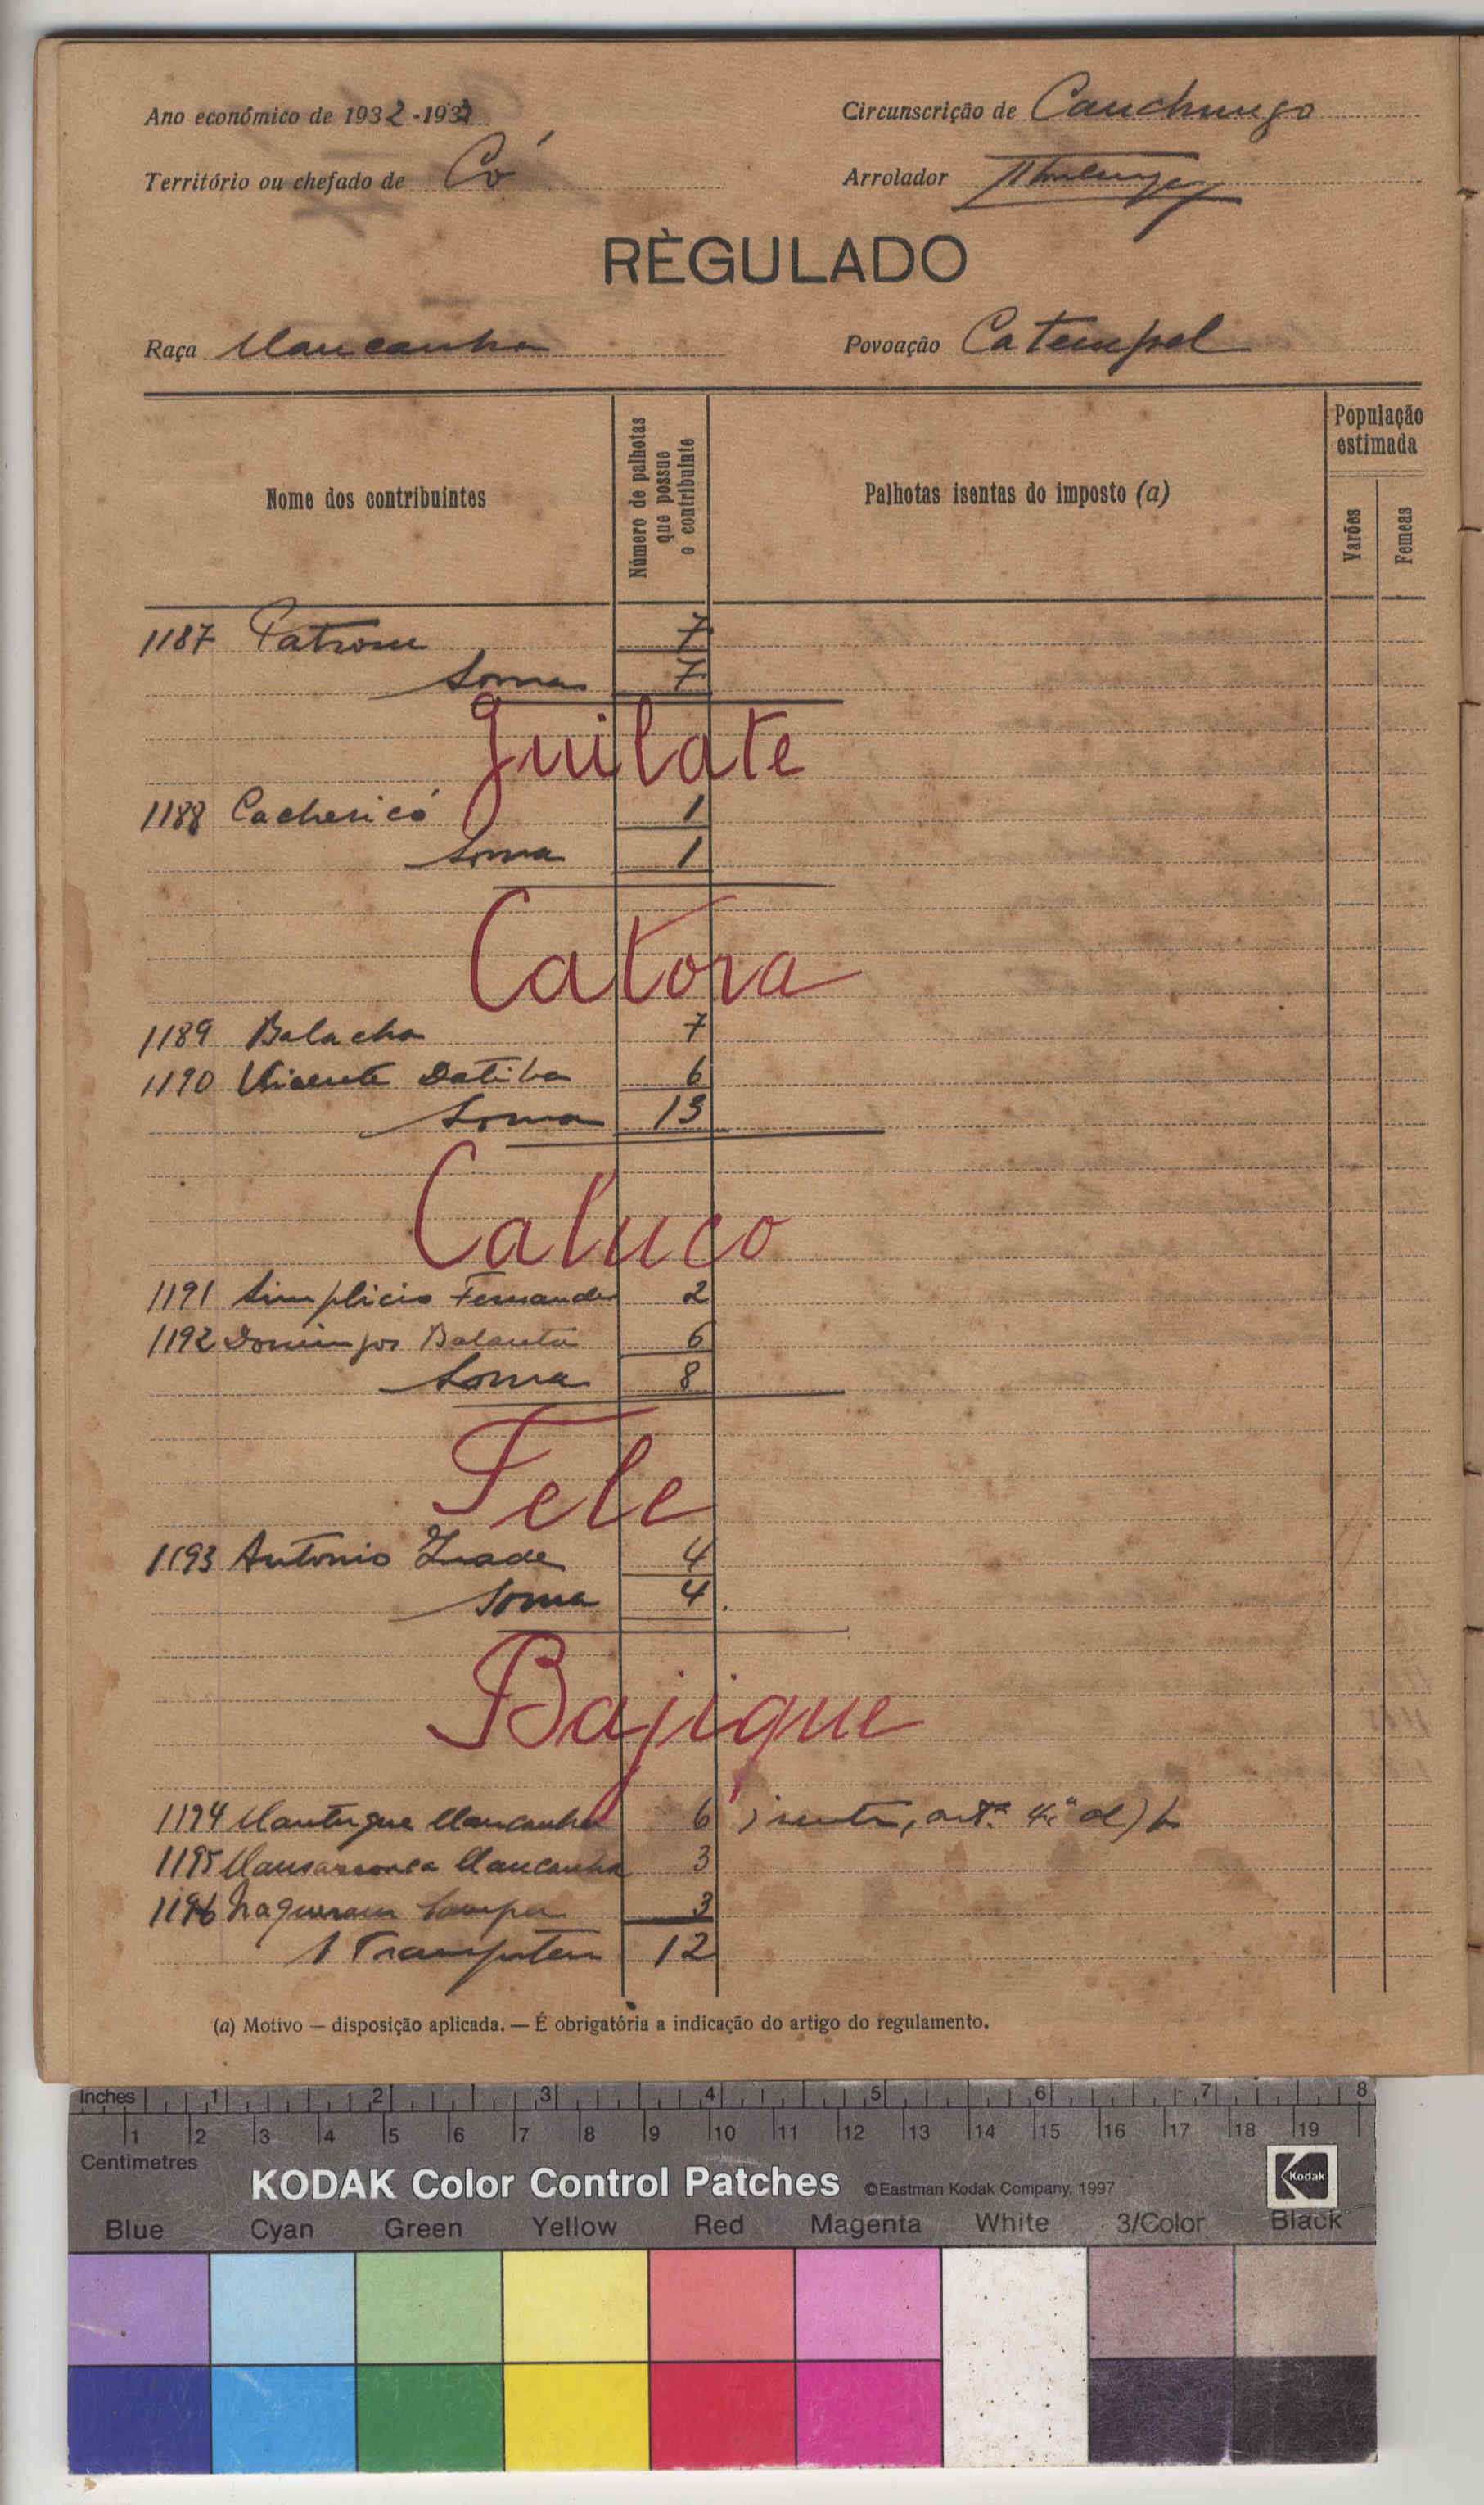 Ano económico de 1932-1933
Circunscrição de Canchungo
Território ou chefado de Có
Arrolador
RÈGULADO
Raça Mancanha
Povoação Catempol
Nome dos contribuintes
Número de palhotas que possue o contribuinte
Palhotas isentas do imposto (a)
População estimada
Varões
Femeas
1187 Patrone 7
Soma 7
Juilate
1188 Cachericó 1
Soma 1
Catora
1189 Balacha 7
1190 Vicente Datiba 6
Soma 13
Caluco
1191 Simplicio Fernandes 2
1192 Domingos Balanta 6
Soma 8
Tele
1193 Antonio 4
Soma 4
Bajique
1194 Mantugue Mancanha 6 isento, artº 4º
1195 Mancanha 3
1196 3
A Transportar 12
(a) Motivo — disposição aplicada. — É obrigatória a indicação do artigo do regulamento.
Inches 1 2 3 4 5 6 7 8
1 2 3 4 5 6 7 8 9 10 11 12 13 14 15 16 17 18 19
Centimetres
KODAK Color Control Patches ©Eastman Kodak Company, 1997
Kodak
Blue Cyan Green Yellow Red Magenta White 3/Color Black